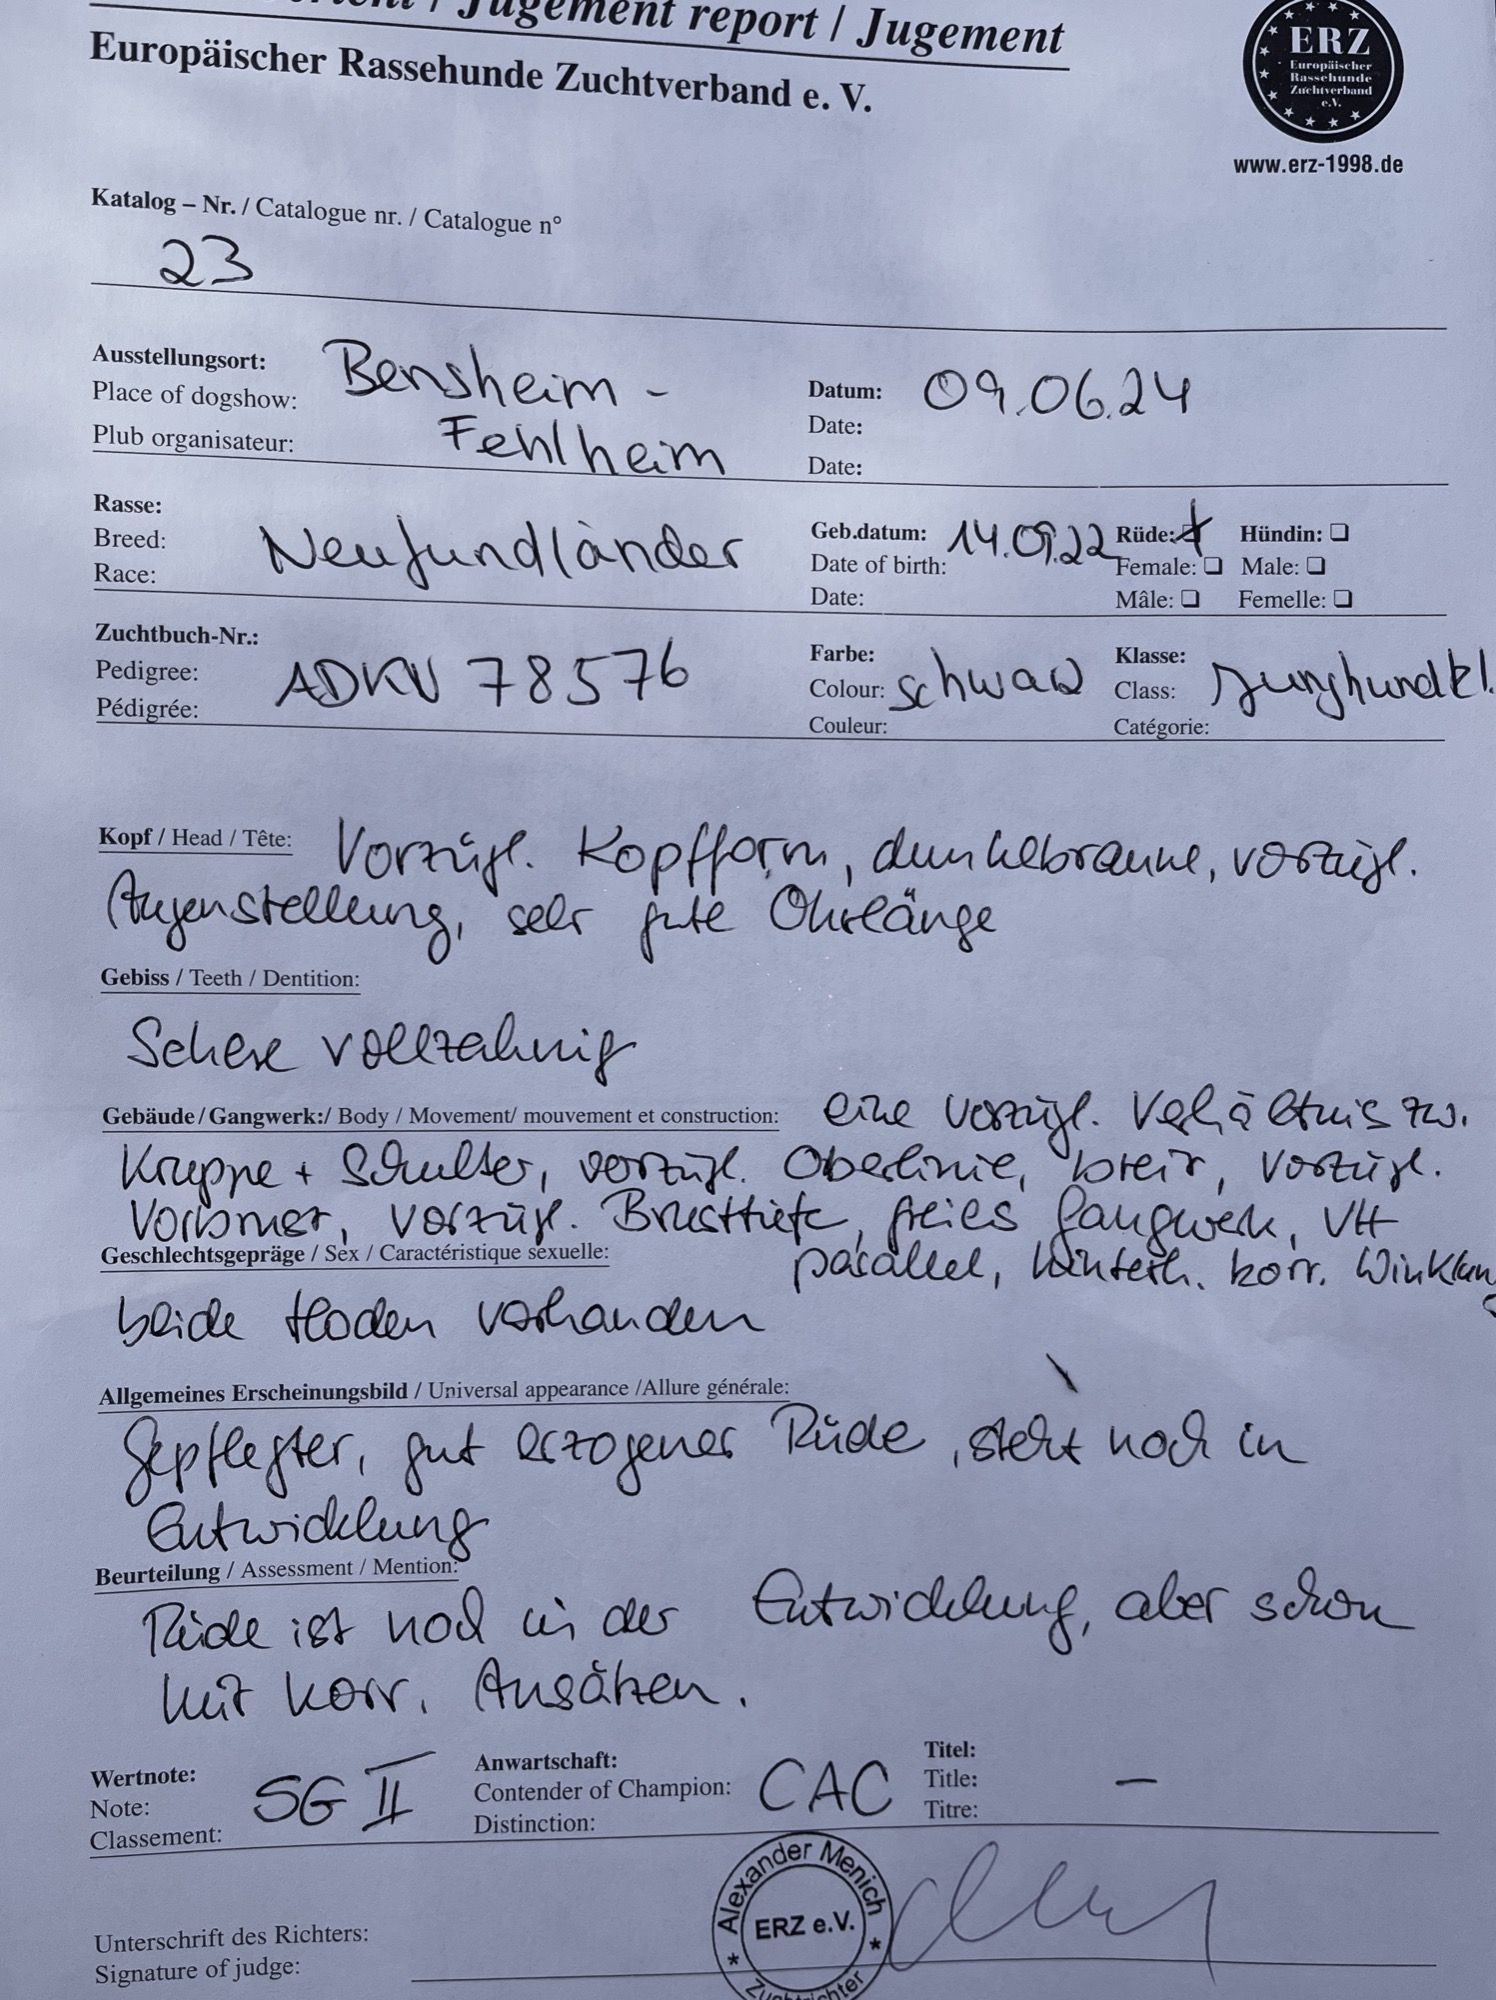 / Jugement report / Jugement
Europäischer Rassehunde Zuchtverband e. V.
ERZ
Europäischer
Rassehunde
Zuchtverband
e.V.
www.erz-1998.de
Katalog – Nr. / Catalogue nr. / Catalogue n°
23
Ausstellungsort:
Place of dogshow:
Plub organisateur:
Bensheim -
Fehlheim
Datum:
Date:
Date:
09.06.24
Rasse:
Breed:
Race:
Neufundländer
Geb.datum:
Date of birth:
Date:
14.09.22
Rüde: Hündin: ❏
Female: ❏ Male: ❏
Mâle: ❏ Femelle: ❏
Zuchtbuch-Nr.:
Pedigree:
Pédigrée:
ADKV 78576
Farbe:
Colour:
Couleur:
schwarz
Klasse:
Class:
Catégorie:
Junghundkl.
Kopf / Head / Tête: Vorzügl. Kopfform, dunkelbraune, vorzügl.
Augenstellung, sehr gute Ohrlänge
Gebiss / Teeth / Dentition:
Schere vollzahnig
Gebäude / Gangwerk:/ Body / Movement/ mouvement et construction: eine vorzügl. Verhältnis zw.
Kruppe + Schulter, vorzügl. Oberlinie, breit, vorzügl.
Vorbrust, vorzügl. Brusttiefe, freies Gangwerk, VH
parallel, Hinterh. korr. Winklung
Geschlechtsgepräge / Sex / Caractéristique sexuelle:
beide Hoden vorhanden
Allgemeines Erscheinungsbild / Universal appearance /Allure générale:
Gepflegter, gut erzogener Rüde, steht noch in
Entwicklung
Beurteilung / Assessment / Mention:
Rüde ist noch in der Entwicklung, aber schon
mit korr. Ansätzen.
Wertnote:
Note:
Classement:
SG II
Anwartschaft:
Contender of Champion:
Distinction:
CAC
Titel:
Title:
Titre:
–
Unterschrift des Richters:
Signature of judge:
Alexander Menich
ERZ e.V.
Zuchtrichter